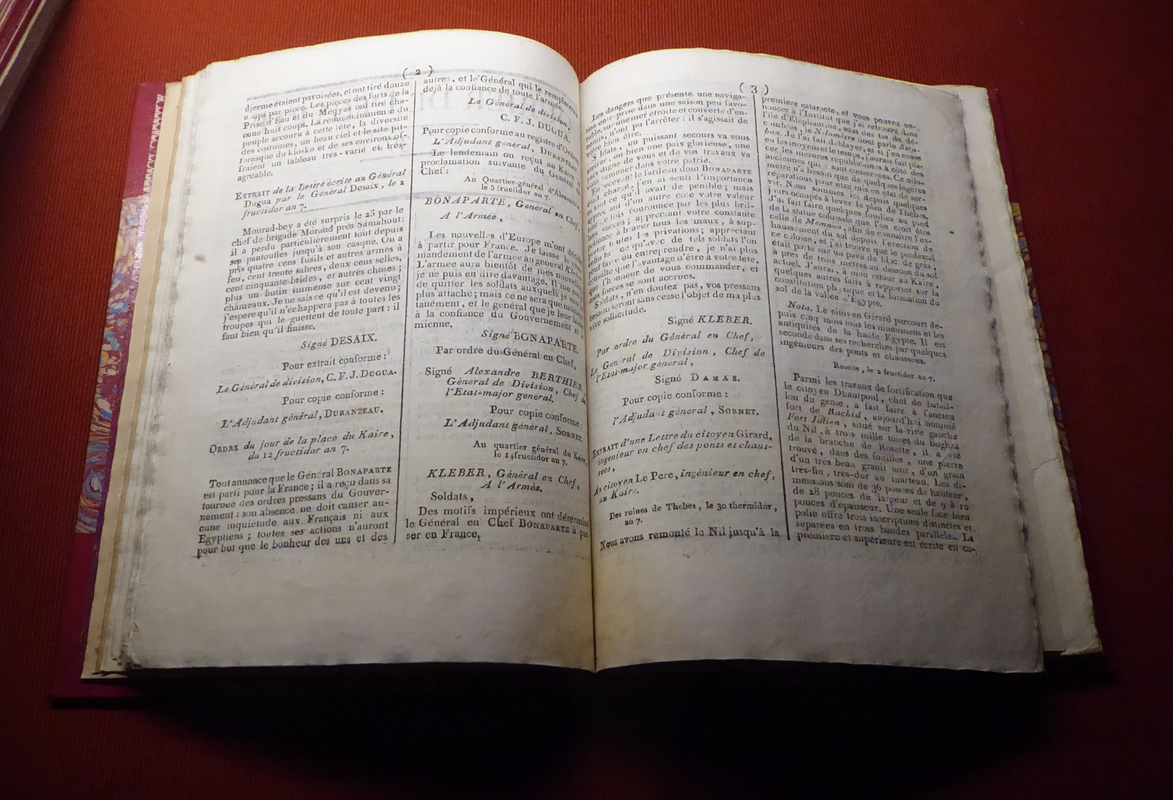 ( 2 )
djerme étaient pavoisées, et ont tiré douze
coups par pièce. Les pièces des forts de la
Prise d'Eau et du Méqyas ont tiré cha-
cune huit coups. La réunion immense du
peuple accouru à cette fête, la diversité
des costumes, un beau ciel et le site pit-
toresque du kioske et de ses environs of-
fraient un tableau très-varié et très-
agréable.
EXTRAIT de la Lettre écrite au Général
Dugua par le Général Desaix, le 2
fructidor an 7.
Mourad-bey a été surpris le 25 par le
chef de brigade Morand près Samahout;
il a perdu particulièrement tout depuis
ses pantoufles jusqu'à son casque. On a
pris quatre cens fusils et autres armes à
feu, cent trente sabres, deux cens selles,
cent cinquante brides, et autres choses;
plus un butin immense sur cent vingt
châmeaux. Je ne sais ce qu'il est devenu;
j'espère qu'il n'échappera pas à toutes les
troupes qui le guettent de toute part: il
faut bien qu'il finisse.
Signé DESAIX.
Pour extrait conforme:
Le Général de division, C. F. J. DUGUA.
Pour copie conforme:
L'Adjudant général, DURANTEAU.
ORDRE du jour de la place du Kaire,
du 12 fructidor an 7.
Tout annonce que le Général BONAPARTE
est parti pour la France; il a reçu dans sa
tournée des ordres pressans du Gouver-
nement: son absence ne doit causer au-
cune inquiétude aux Français ni aux
Egyptiens; toutes ses actions n'auront
pour but que le bonheur des uns et des
autres, et le Général qui le remplace
déjà la confiance de toute l'armée.
Le Général de division,
C. F. J. DUGUA.
Pour copie conforme au registre d'Ordre
L'Adjudant général, DURANTEAU.
Le lendemain on reçut au Kaire
proclamation suivante du Général
Chef:
Au Quartier-général
le 5 fructidor an 7.
BONAPARTE, Général en Chef,
A l'Armée,
Les nouvelles d'Europe m'ont
à partir pour France. Je laisse
mandement de l'armée au général Kleber.
L'armée aura bientôt de mes nouvelles
je ne puis en dire davantage. Il me
de quitter les soldats auxquels je
plus attaché; mais ce ne sera que
tanément, et le général que je leur
à la confiance du Gouvernement et
mienne.
Signé BONAPARTE.
Par ordre du Général en Chef,
Signé Alexandre BERTHIER
Général de Division, Chef de
l'Etat-major général.
Pour copie conforme:
L'Adjudant général, SORNET.
Au quartier général du Kaire,
le 14 fructidor an 7.
KLEBER, Général en Chef,
A l'Armée.
Soldats,
Des motifs impérieux ont déterminé
le Général en Chef BONAPARTE à pas-
ser en France.
( 3 )
Les dangers que présente une naviga-
prise dans une saison peu favo-
sur une mer étroite et couverte d'en-
n'ont pu l'arrêter: il s'agissait de
bien être.
Soldats, un puissant secours va vous
ou bien une paix glorieuse, une
digne de vous et de vos travaux va
ramener dans votre patrie.
recevant le fardeau dont BONAPARTE
chargé, j'en ai senti l'importance
ce qu'il avait de pénible; mais
d'un autre côté votre valeur
fois couronnée par les plus bril-
succès; appréciant votre constante
à braver tous les maux, à sup-
toutes les privations; appréciant
ce qu'avec de tels soldats l'on
ou entreprendre, je n'ai plus
que l'avantage d'être à votre tête,
l'honneur de vous commander, et
forces se sont accrues.
Soldats, n'en doutez pas, vos pressans
besoins seront sans cesse l'objet de ma plus
vive sollicitude.
Signé KLEBER.
Par ordre du Général en Chef,
Le Général de Division, Chef de
l'Etat-major général,
Signé DAMAS.
Pour copie conforme:
l'Adjudant général, SORNET.
EXTRAIT d'une Lettre du citoyen Girard,
ingénieur en chef des ponts et chaus-
sées,
Au citoyen Le Pere, ingénieur en chef,
au Kaire.
Des ruines de Thèbes, le 30 thermidor,
an 7.
Nous avons remonté le Nil jusqu'à la
première cataracte, et vous pouvez an-
noncer à l'Institut que j'ai retrouvé dans
l'île d'Eléphantine, sous des tas de dé-
combres, le Nilomètre dont parle Stra-
bon. Je l'ai fait déblayer, et si j'en eusse
eu les moyens et le temps, j'aurais fait pla-
cer les mesures républicaines à côté des
anciennes qui y sont conservées. Ce nilo-
mètre n'a besoin que de quelques légères
réparations pour être mis en état de ser-
vir. Nous sommes ici depuis quelques
jours occupés à lever le plan de Thèbes.
J'ai fait faire quelques fouilles au pied
de la statue colossale que l'on croit être
celle de Memnon, afin de connaître l'ex-
haussement du sol depuis l'érection de
ce colosse, et j'ai trouvé que le piédestal
était porté sur un pavé de bloc de grès,
à près de trois mètres au dessous du sol
actuel. J'aurai, à mon retour au Kaire,
quelques autres faits à rapporter sur la
constitution physique et la formation du
sol de la vallée d'Egypte.
Nota. Le citoyen Girard parcourt de-
puis cinq mois tous les monumens et les
antiquités de la haute Egypte. Il est
secondé dans ses recherches par quelques
ingénieurs des ponts et chaussées.
Rosette, le 2 fructidor an 7.
Parmi les travaux de fortification que
le citoyen Dhautpoul, chef de batail-
lon du génie, a fait faire à l'ancien
fort de Rachid, aujourd'hui nommé
Fort Julien, situé sur la rive gauche
du Nil, à trois mille toises du Boghaz
de la branche de Rosette, il a été
trouvé, dans des fouilles, une pierre
d'un très beau granit noir, d'un grain
très-fin, très-dur au marteau. Les di-
mensions sont de 36 pouces de hauteur,
de 28 pouces de largeur et de 9 à 10
pouces d'épaisseur. Une seule face bien
polie offre trois inscriptions distinctes et
séparées en trois bandes parallèles. La
première et supérieure est écrite en ca-